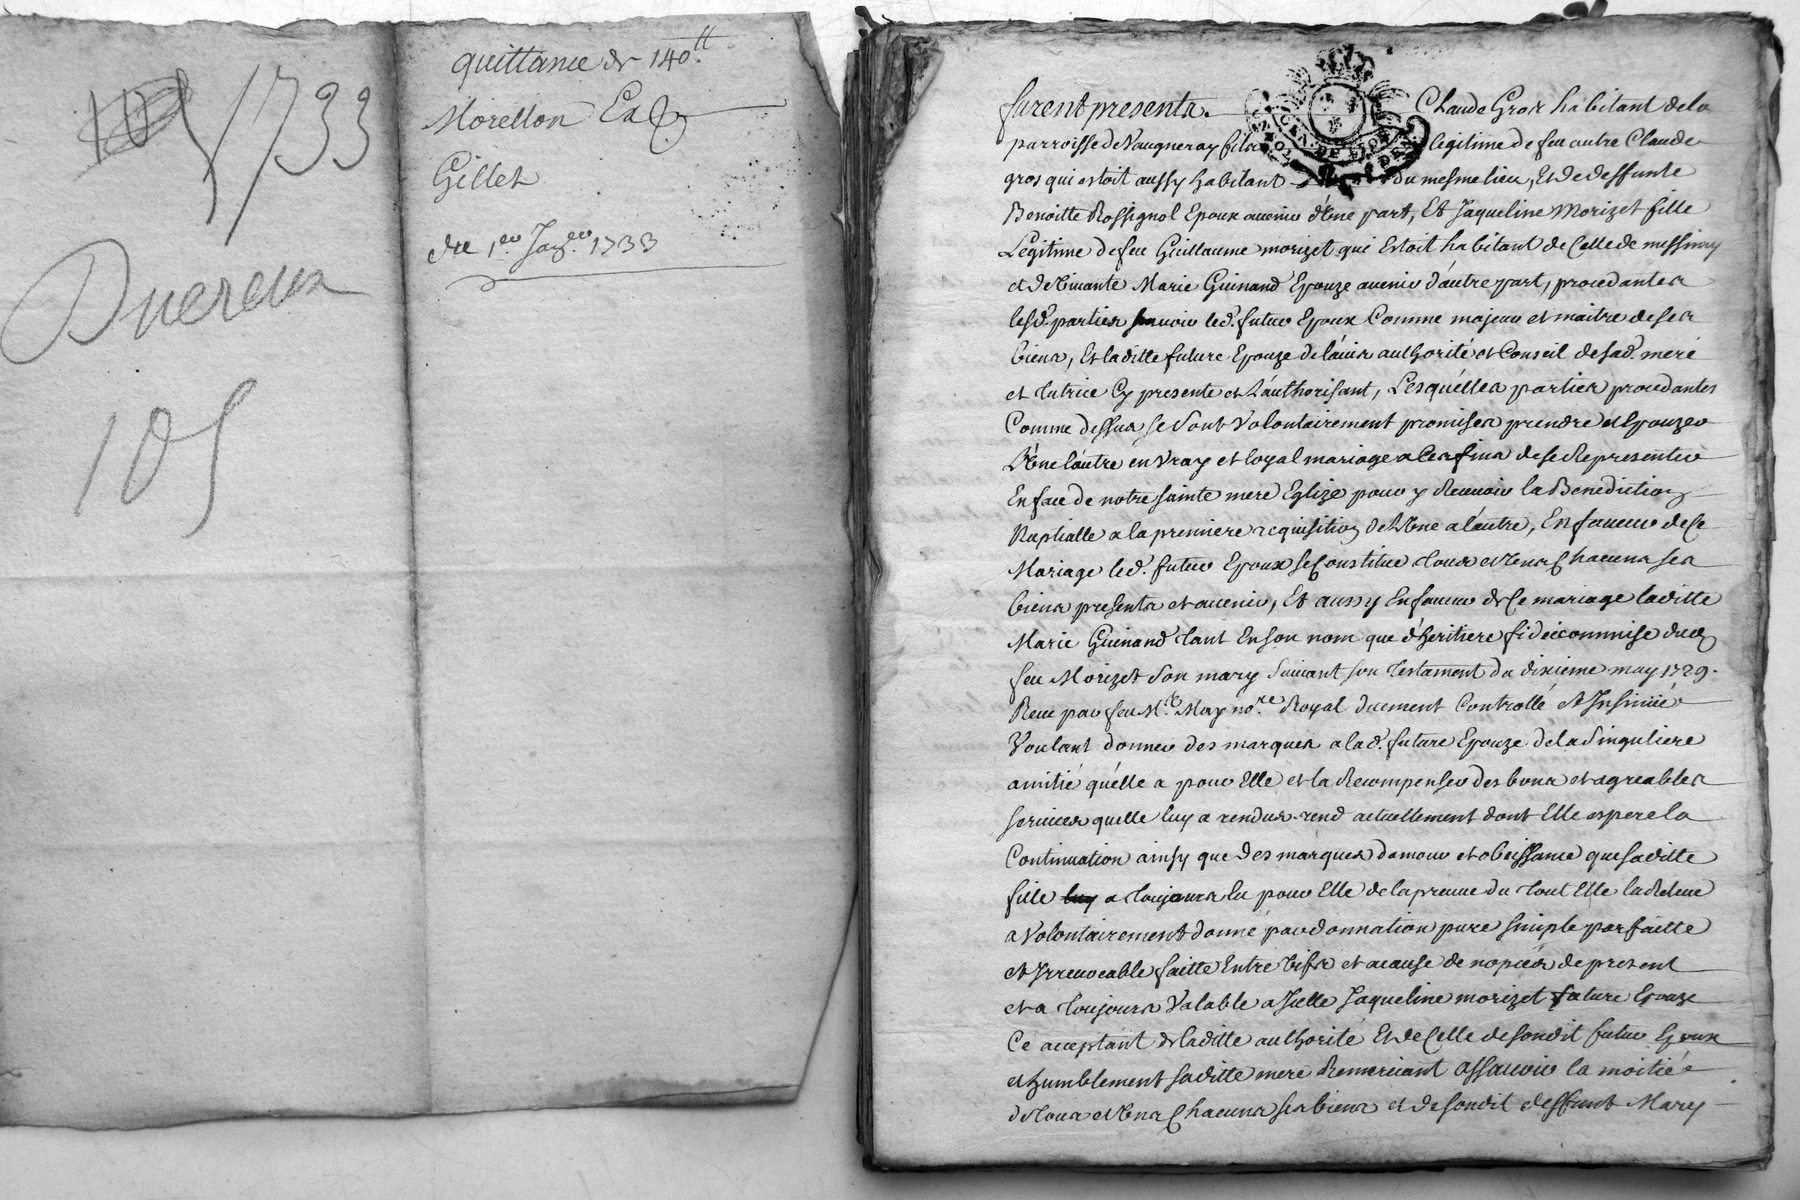 1733
Duereux
105
quittance de 140tt
Morellon Ea
Gillet
du 1er Jag.er 1733
furent presents. Claude Gros habitant de la
parroisse de Vaugneray fils legitime de feu autre Claude
gros qui estoit aussy habitant du mesme lieu, Et de deffunte
Benoitte Rossignol Epoux avenir d'Une part, Et Jaqueline Morizet fille
Legitime de feu Guillaume morizet qui Estoit habitant de Celle de messimy
et de Vivante Marie Guinand Epouze avenir d'autre part, procedantes
lesd. parties scavoir led. futur Epoux Comme majeur et maitre de ses
biens, Et laditte future Epouze de l'avis authorité et Conseil de sad. mere
et tutrice Cy presente et L'authorisant, Lesquelles parties procedantes
Comme dessus se sont Volontairement promises prendre et Epouzer
L'Une l'autre en Vray et loyal mariage a les fins de se Representer
En face de notre sainte mere Eglize pour y Recevoir la Benediction
Nuptialle a la premiere requisition de L'Une a l'autre, En faveur de Ce
Mariage led. futur Epoux se Constitue tous et Uns Chacuns ses
biens presents et avenir, Et aussy En faveur de Ce mariage laditte
Marie Guinand tant En son nom que d'heritiere fideicommise dud.
feu Morizet son mary suivant son testament du dixieme may 1729.
Receu par feu M.e May no.re Royal duement Controllé et Insinüé
Voulant donner des marques a lad. future Epouze de la singuliere
amitié qu'elle a pour Elle et la Recompenser des bons et agreables
services quelle luy a rendus, rend actuellement dont Elle espere la
Continuation ainsy que des marques d'amour et obeissance que saditte
fille luy a toujours Eu pour Elle de la preuve du tout Elle la Releve
a Volontairement donné par donnation pure simple parfaitte
et Irrevocable faitte Entre Vifs et a cause de nopces de present
et a toujours Valable a Icelle Jaqueline morizet future Epouze
Ce acceptant de laditte authorité Et de Celle de sondit futur Epoux
et humblement saditte mere Remerciant Assavoir la moitié
de tous et Uns Chacuns ses biens et de sondit deffunt Mary